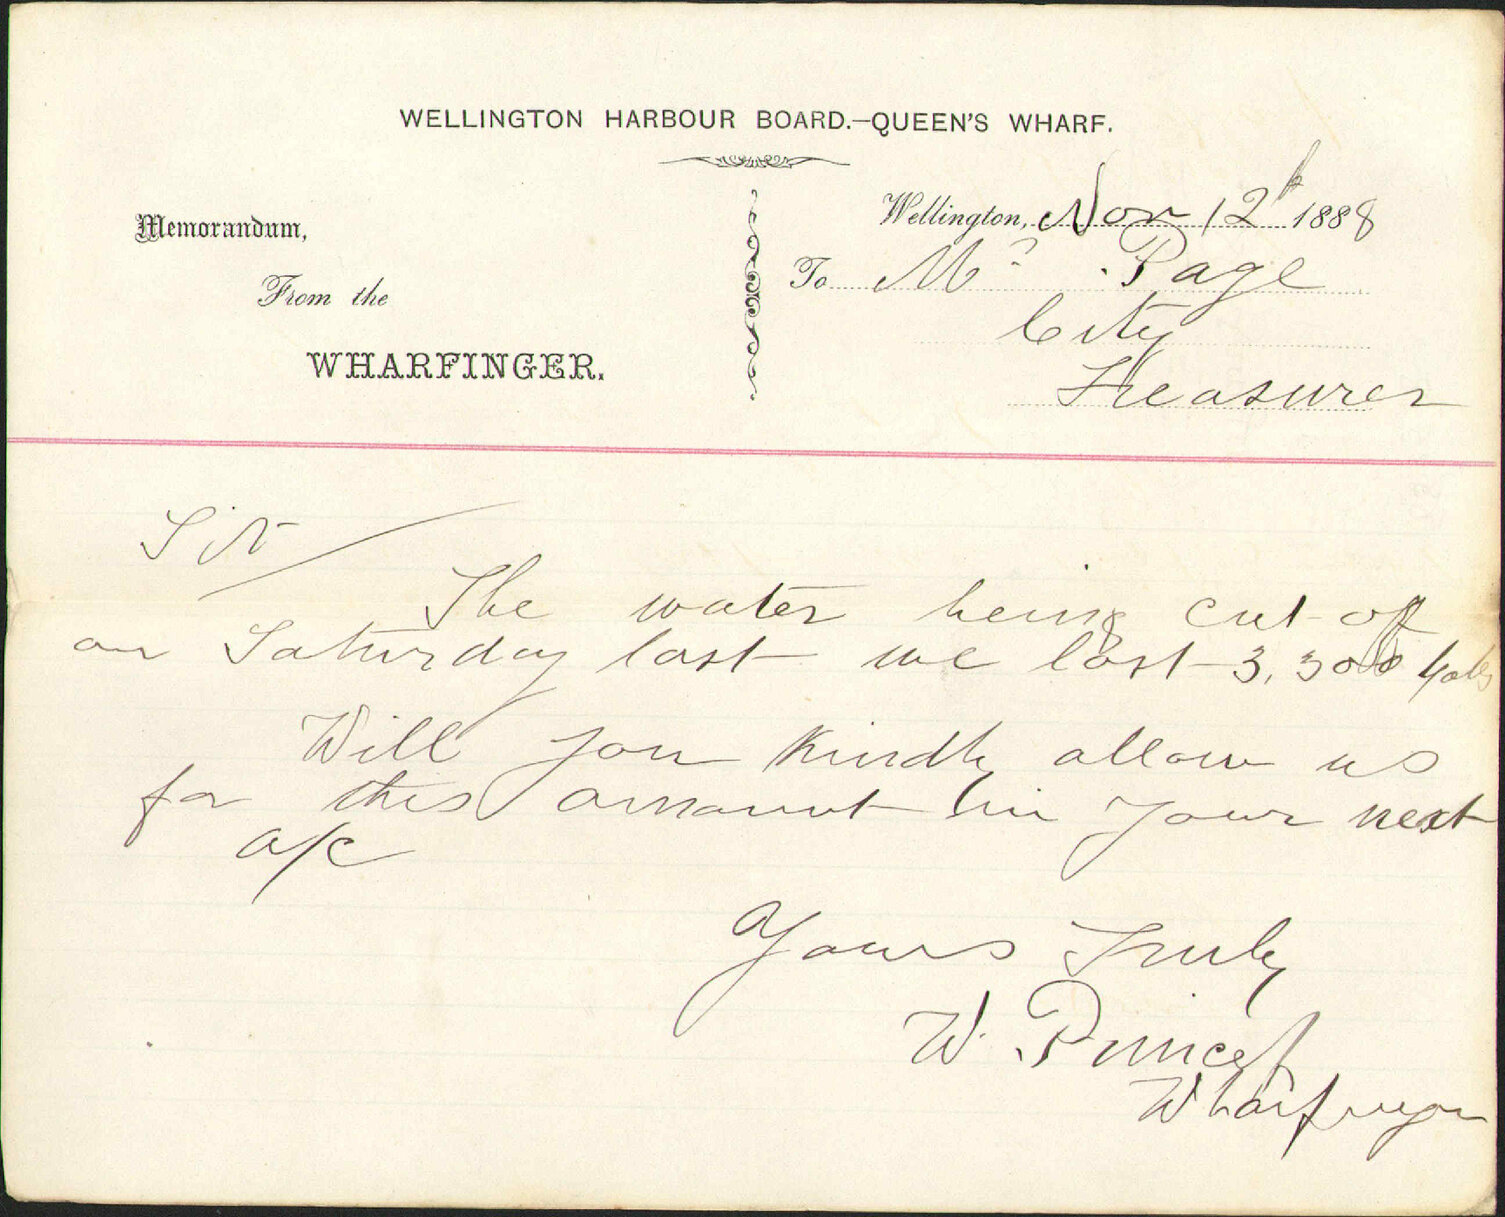 WELLINGTON HARBOUR BOARD.—QUEEN'S WHARF.
Memorandum,
From the
WHARFINGER.
Wellington, Nov 12th 1888
To Mr Page
City
Treasurer
Sir
The water being cut off
on Saturday last we lost 3,300 Galls
Will you kindly allow us
for this amount in your next
a/c
Yours Truly
W. Prince
Wharfinger